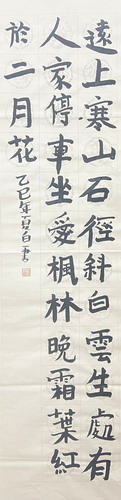 遠上寒山石徑斜白雲生處有
人家停車坐愛楓林晚霜葉紅
於二月花
乙巳年夏白